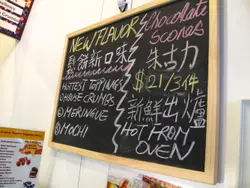 NEW FLAVOR
新口味
HOTTEST TOPPINGS
CRUMBS
MERINGUE
MOCHI
Chocolate
Scones
朱古力
$21/
新鮮出爐
HOT FROM
OVEN